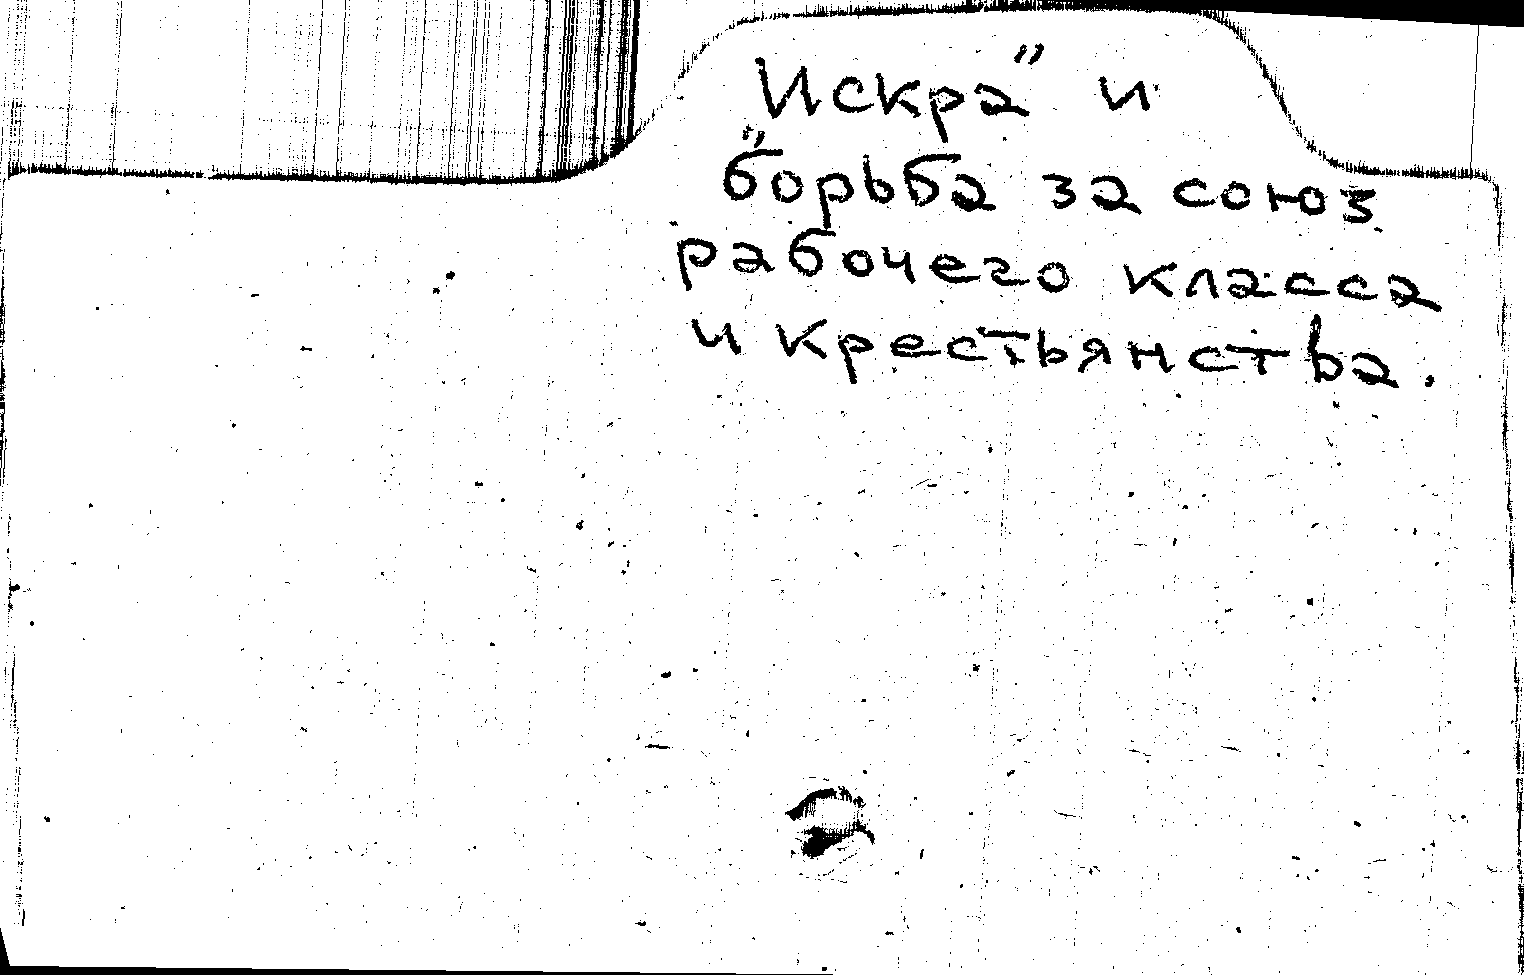 „Искра" и
борьба за союз
рабочего класса
и крестьянства.